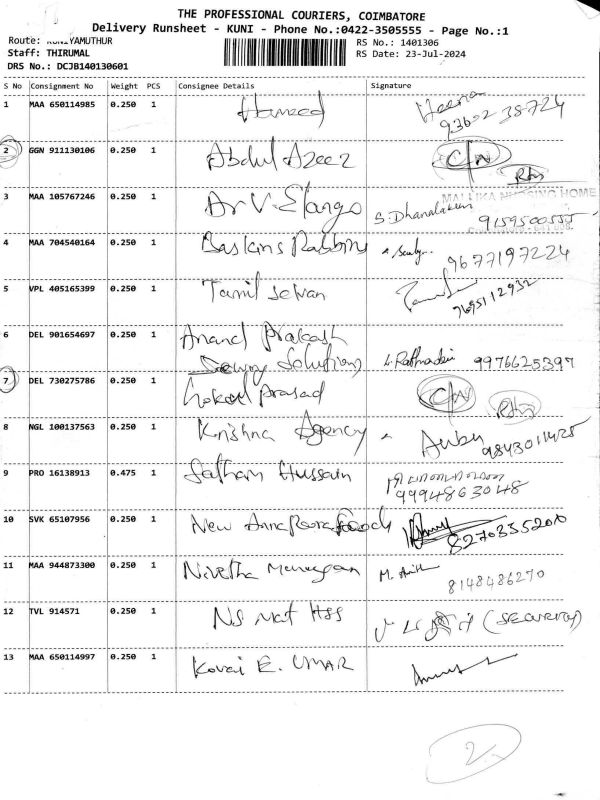 THE PROFESSIONAL COURIERS, COIMBATORE
Delivery Runsheet - KUNI - Phone No.:0422-3505555 - Page No.:1
Route: KUNIYAMUTHUR RS No.: 1401306
Staff: THIRUMAL RS Date: 23-Jul-2024
DRS No.: DCJB140130601
S No Consignment No Weight PCS Consignee Details Signature
1 MAA 650114985 0.250 1 Hameed
93602 38724
2 GGN 911130106 0.250 1 Abdul Azeez C/N
Rtn
3 MAA 105767246 0.250 1 Dr V. Elango S. Dhanalakshmi 9159500555
MALLIKA NURSING HOME
4 MAA 704540164 0.250 1 Baskins Rabbins 9677197224
5 VPL 405165399 0.250 1 Tamil Selvan 7695112932
6 DEL 901654697 0.250 1 Anand Prakash
Sewing Solutions 9976625397
7 DEL 730275786 0.250 1 Gokul Prasad C/N Rtn
8 NGL 100137563 0.250 1 Krishna Agency Anbu 9843011425
9 PRO 16138913 0.475 1 Satham Hussain
9994863048
10 SVK 65107956 0.250 1 New Annapoorna Foods 8270335200
11 MAA 944873300 0.250 1 Nivetha Murugan 8148486270
12 TVL 914571 0.250 1 NS Mat HSS (SECURITY)
13 MAA 650114997 0.250 1 Kovai E. UMAR
2